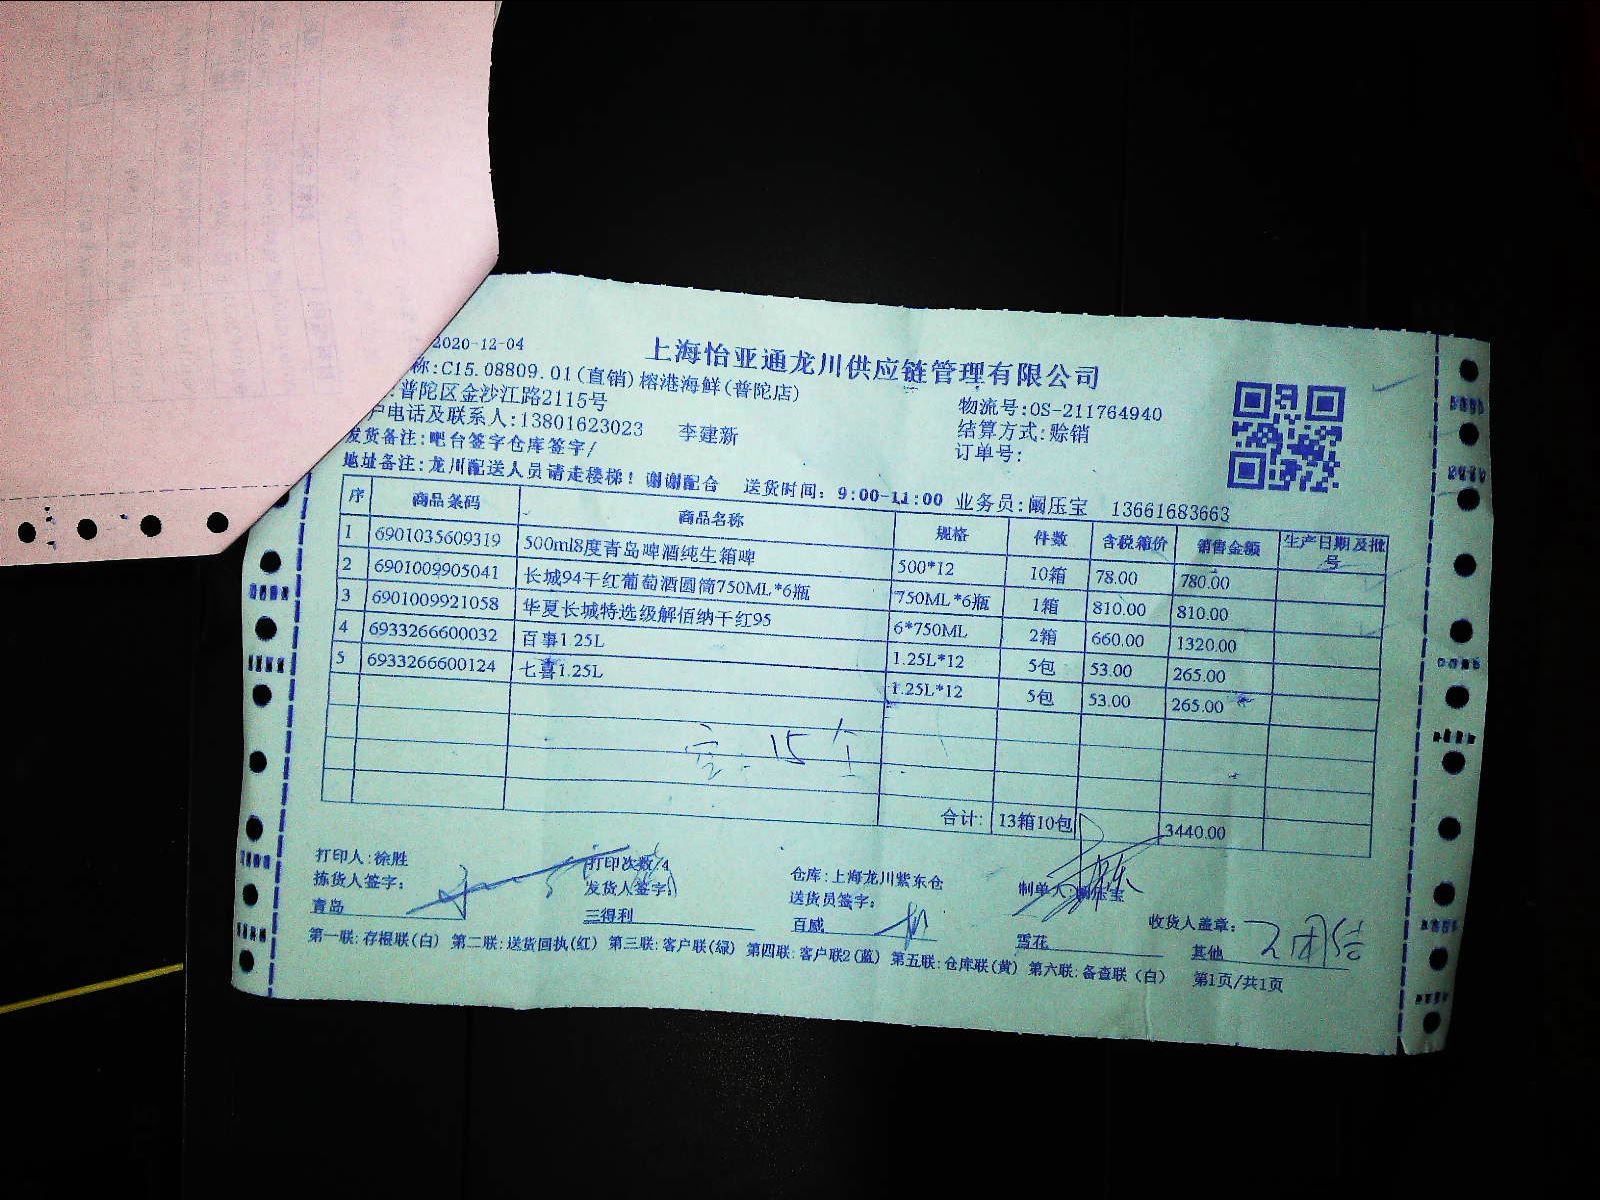 2020-12-04
上海怡亚通龙川供应链管理有限公司
称:C15.08809.01(直销)榕港海鲜(普陀店)
:普陀区金沙江路2115号
物流号:OS-211764940
户电话及联系人:13801623023 李建新
结算方式:赊销
发货备注:吧台签字仓库签字/
订单号:
地址备注:龙川配送人员请走楼梯！谢谢配合 送货时间：9:00-11:00 业务员:阚压宝 13661683663
序 商品条码 商品名称 规格 件数 含税箱价 销售金额 生产日期及批号
1 6901035609319 500ml8度青岛啤酒纯生箱啤 500*12 10箱 78.00 780.00
2 6901009905041 长城94干红葡萄酒圆筒750ML*6瓶 750ML*6瓶 1箱 810.00 810.00
3 6901009921058 华夏长城特选级解佰纳干红95 6*750ML 2箱 660.00 1320.00
4 6933266600032 百事1.25L 1.25L*12 5包 53.00 265.00
5 6933266600124 七喜1.25L 1.25L*12 5包 53.00 265.00
15
合计: 13箱10包 3440.00
打印人:徐胜 打印次数/4 仓库:上海龙川紫东仓 制单人:阚压宝
拣货人签字: 发货人签字: 送货员签字: 收货人盖章:
青岛 三得利 百威 雪花 其他
第一联:存根联(白) 第二联:送货回执(红) 第三联:客户联(绿) 第四联:客户联2(蓝) 第五联:仓库联(黄) 第六联:备查联(白) 第1页/共1页